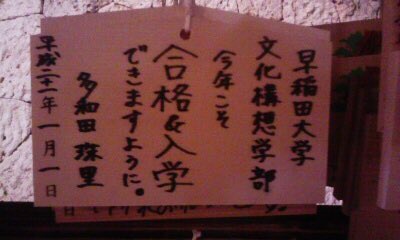 早稲田大学
文化構想学部
今年こそ
合格&入学
できますように。
多和田 珠里
平成二十一年一月一日